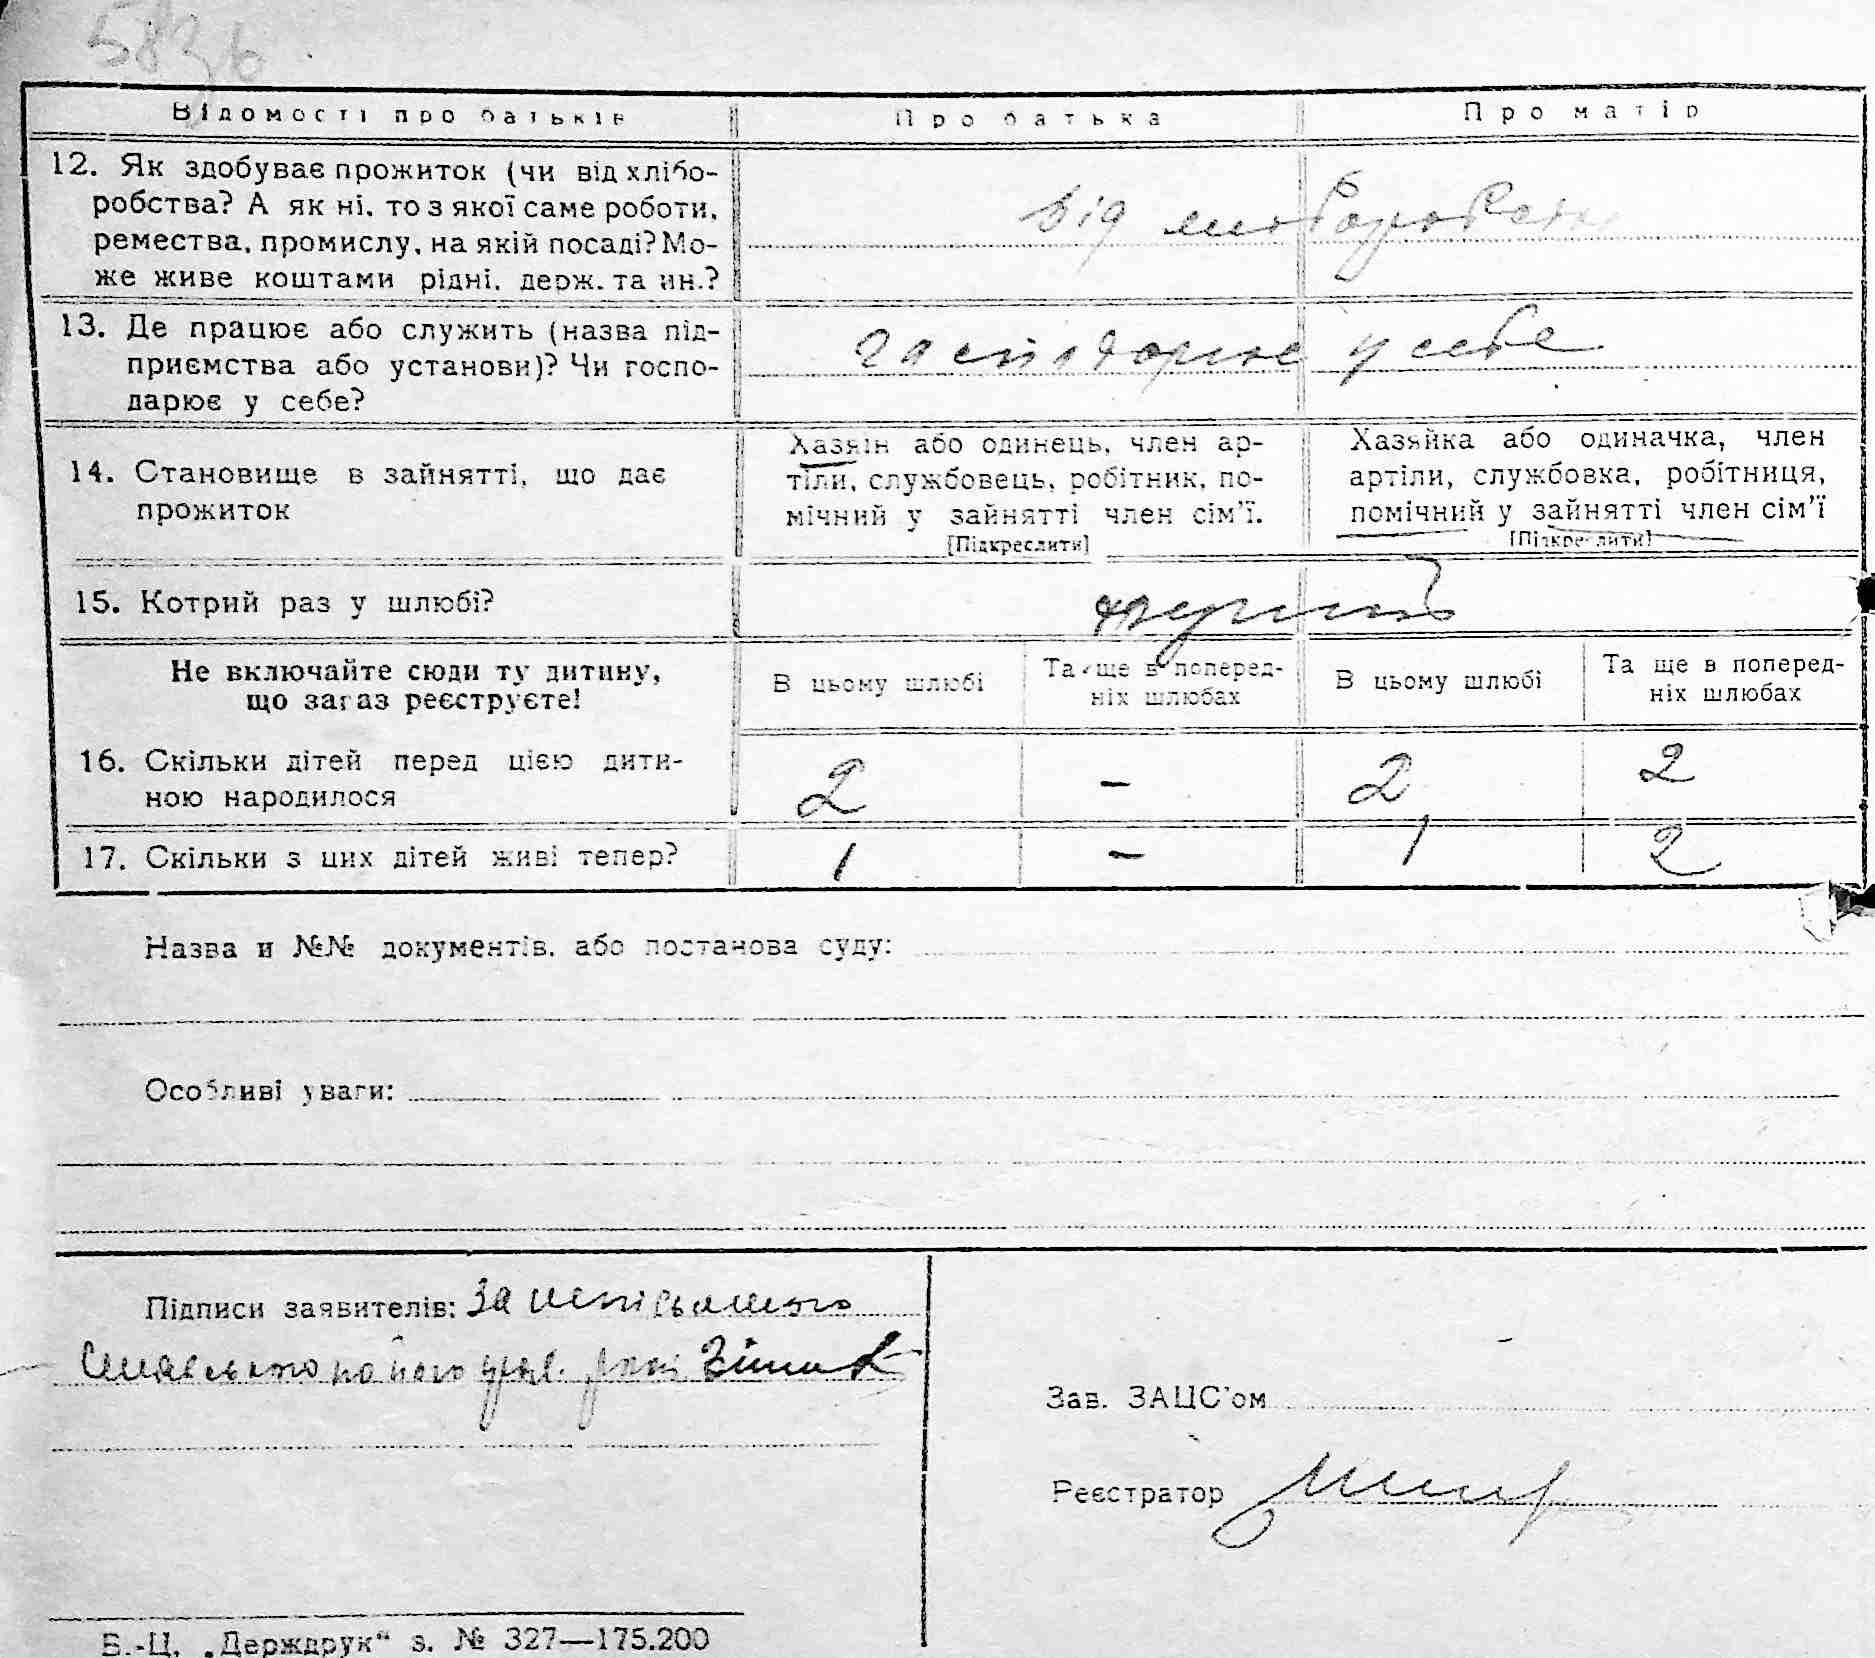 583ь
Відомості про батьків
Про батька
Про матір
12. Як здобуває прожиток (чи від хлібо-
робства? А як ні, то з якої саме роботи,
ремества, промислу, на якій посаді? Мо-
же живе коштами рідні, держ. та ин.?
від хліборобства
13. Де працює або служить (назва під-
приємства або установи)? Чи госпо-
дарює у себе?
господарює у себе
14. Становище в зайнятті, що дає
прожиток
Хазяїн або одинець, член ар-
тіли, службовець, робітник, по-
мічний у зайнятті член сім'ї.
[Підкреслити]
Хазяйка або одиначка, член
артіли, службовка, робітниця,
помічний у зайнятті член сім'ї
[Підкреслити]
15. Котрий раз у шлюбі?
перший
Не включайте сюди ту дитину,
що зараз реєструєте!
В цьому шлюбі
Та ще в поперед-
ніх шлюбах
В цьому шлюбі
Та ще в поперед-
ніх шлюбах
16. Скільки дітей перед цією дити-
ною народилося
2 - 2 2
17. Скільки з цих дітей живі тепер?
1 - 1 2
Назва и №№ документів, або постанова суду:
Особливі уваги:
Підписи заявителів: За неписьменого
Зав. ЗАЦС'ом
Реєстратор
Б.-Ц. „Держдрук“ з. № 327—175.200